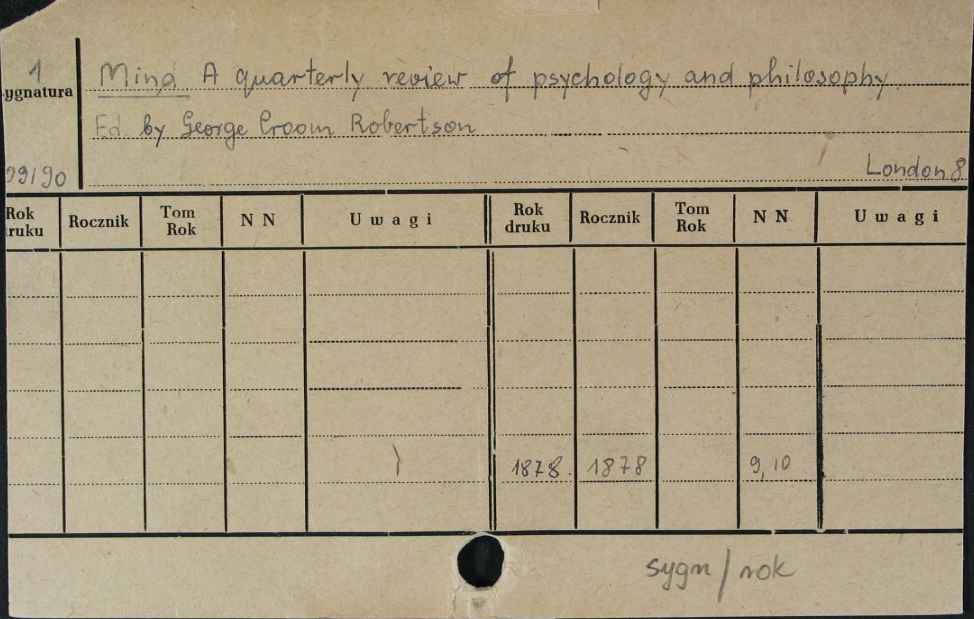 1 Mind A quarterly review of psychology and philosophy
ygnatura
Ed by George Croom Robertson
99190 London 8
Rok ruku Rocznik Tom Rok N N Uwagi Rok druku Rocznik Tom Rok N N Uwagi
1878. 1878 9, 10
sygn / rok